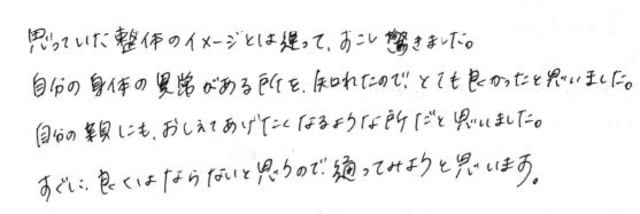 思っていた整体のイメージとは違って、すこし驚きました。
自分の身体の異常がある所を、知れたので、とても良かったと思いました。
自分の親にも、おしえてあげたくなるような所だと思いました。
すぐに、良くはならないと思うので、通ってみようと思います。